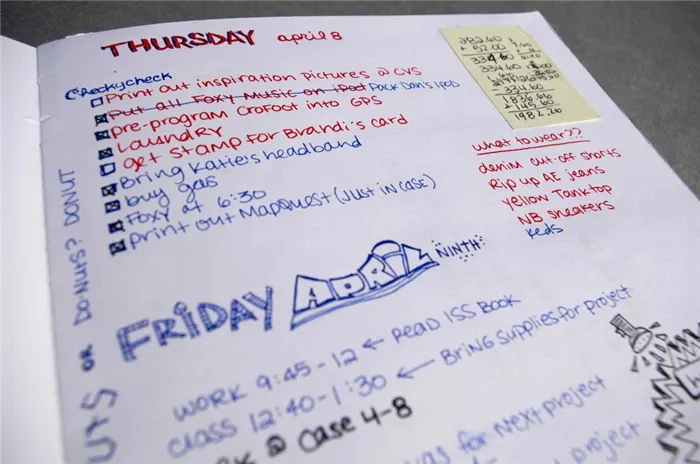 THURSDAY april 8
Checkycheck
Print out inspiration pictures @ CVS
Put all Foxy Music on iPod Pack Dan's ipod
pre-program Crofoot into GPS
LAUNDRY
get stamp for Brandi's card
Bring Katie's headband
buy gas
FOXY at 6:30
print out Mapquest (Just in case)
282.60
+ 52.00
334.60
334.60
334.60
1836.66
+ 145.60
1982.26
what to wear??
denim cut-off shorts
Rip up AE jeans
yellow Tanktop
NB sneakers
Keds
OR DO-NUTS? DONUT
FRIDAY APRIL NINTH
WORK 9:45-12 ← READ ISS BOOK
class 12:40-1:30 ← BRING SUPPLIES for project
@ case 4-8
for Next project
project